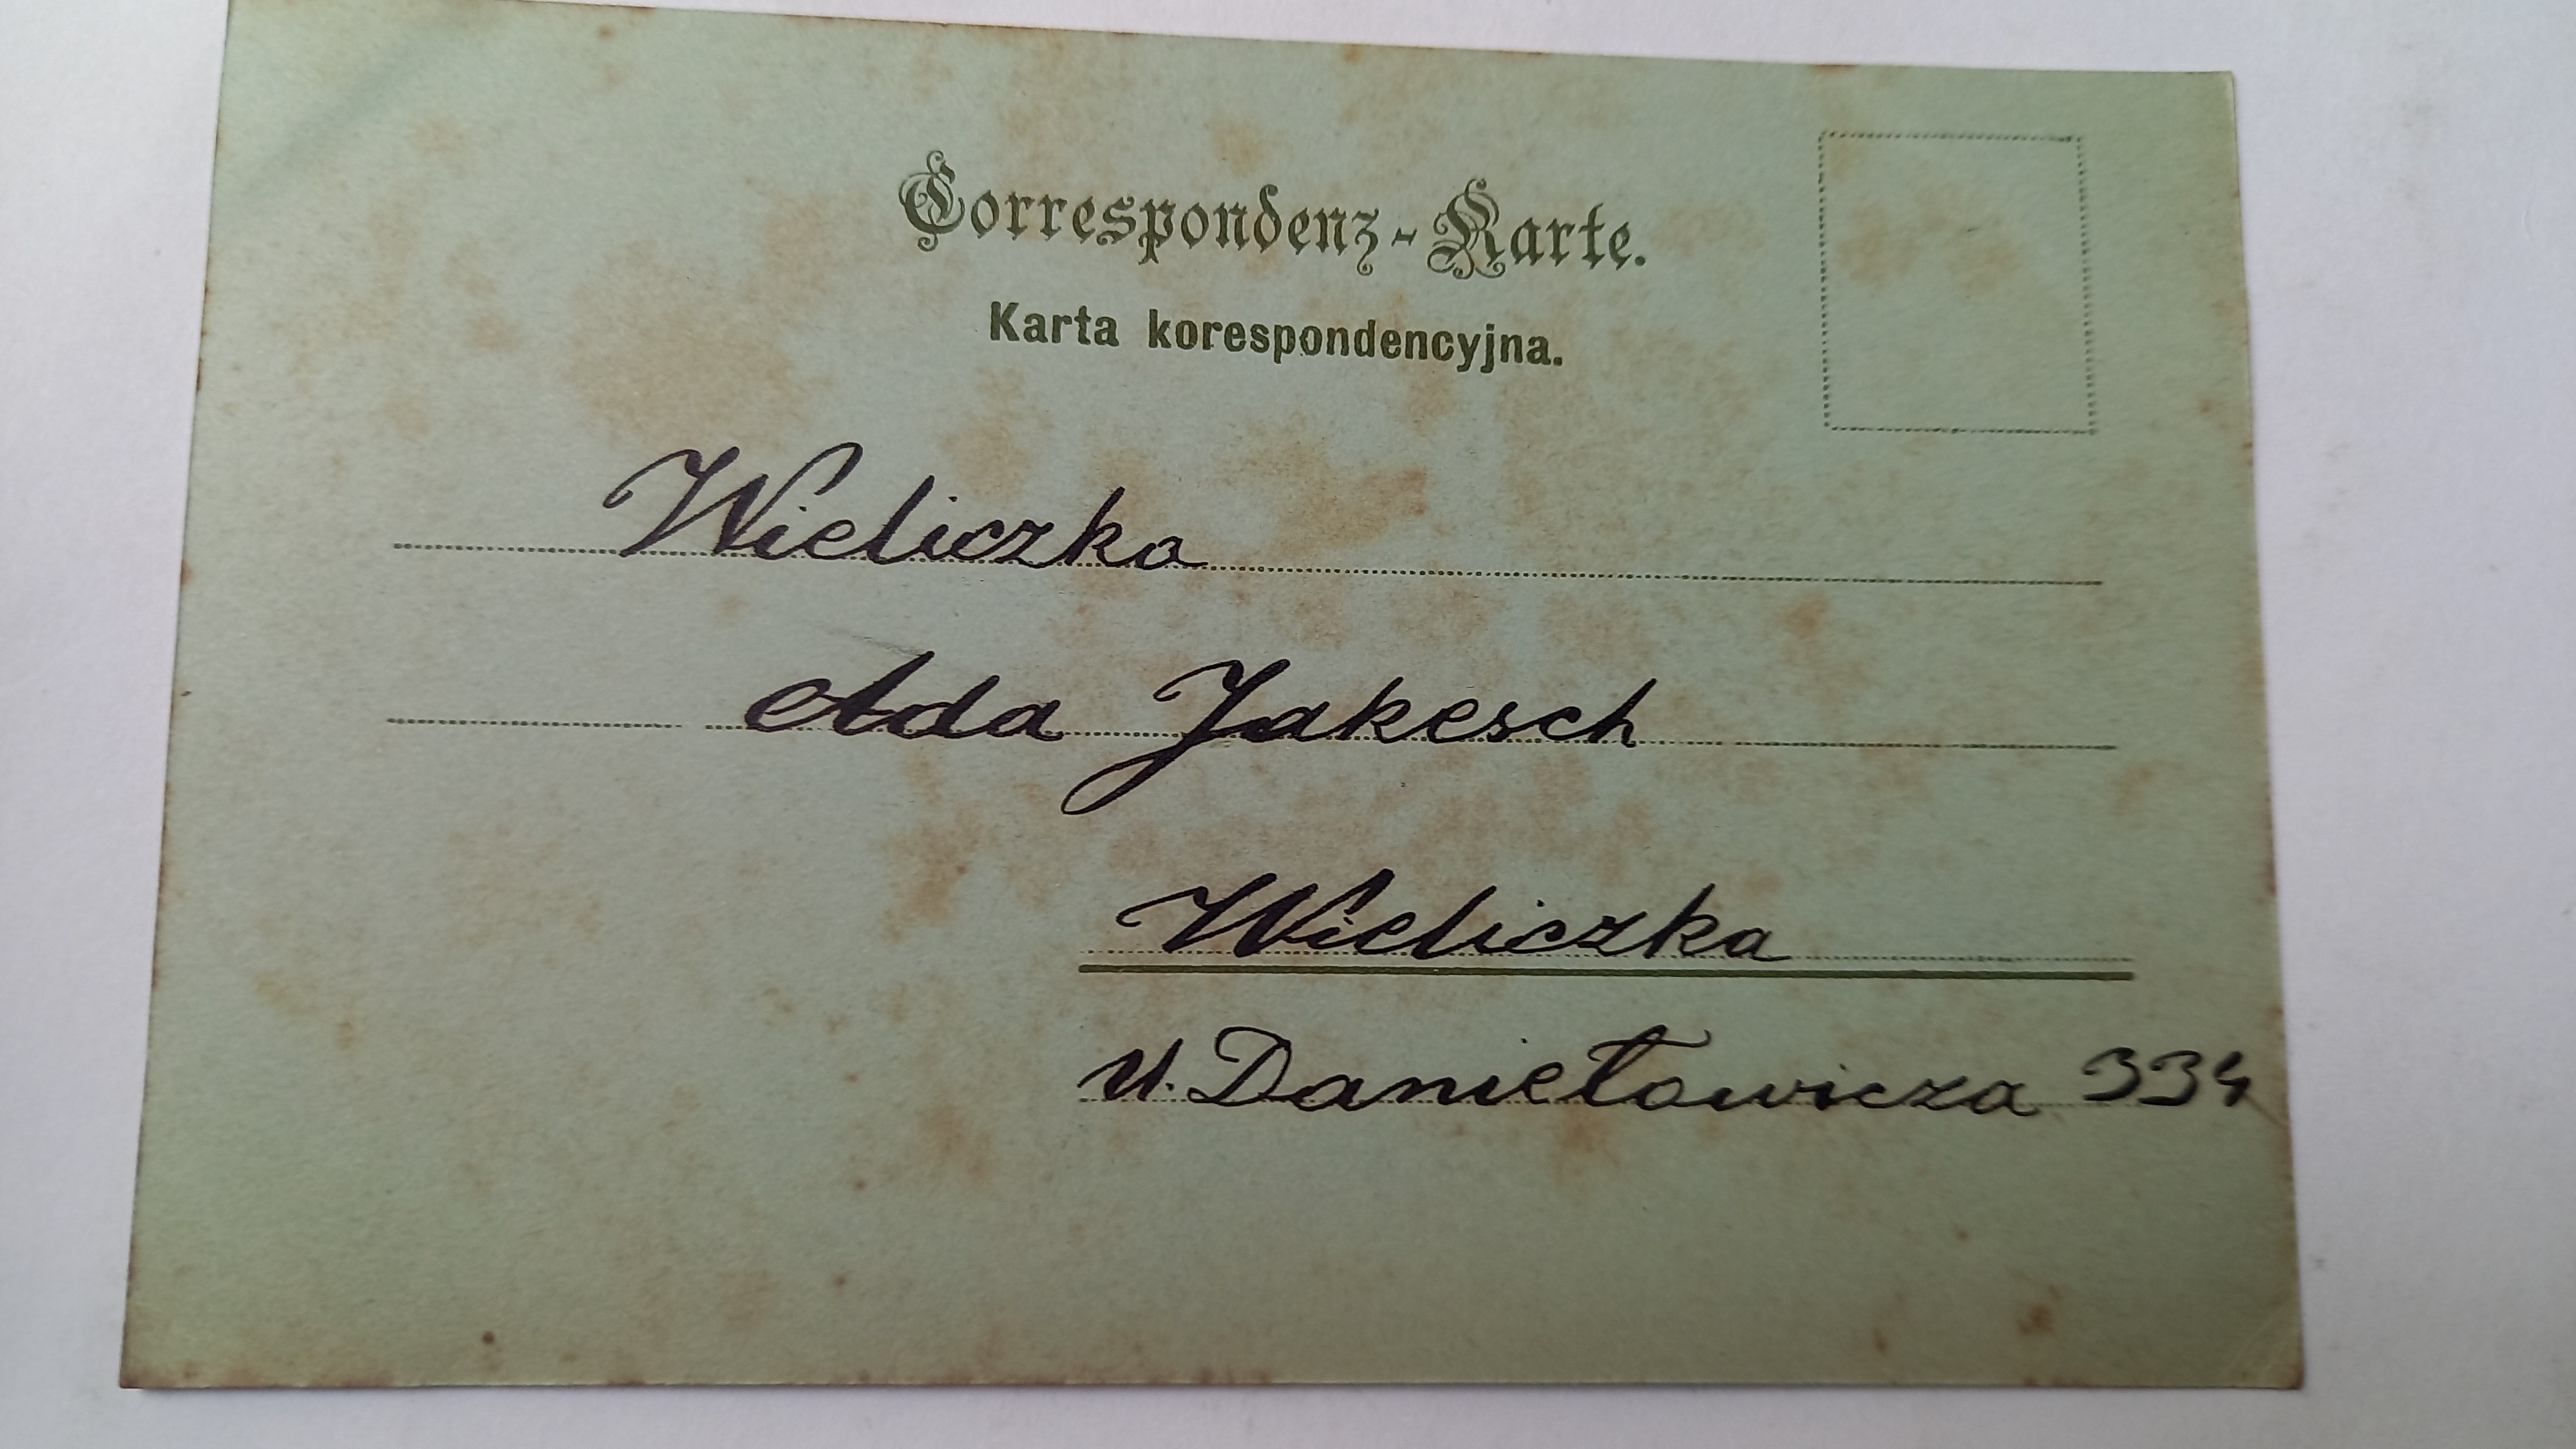 Correspondenz-Karte.
Karta korespondencyjna.
Wieliczka
Ada Jakesch
Wieliczka
u. Daniełowicza 334